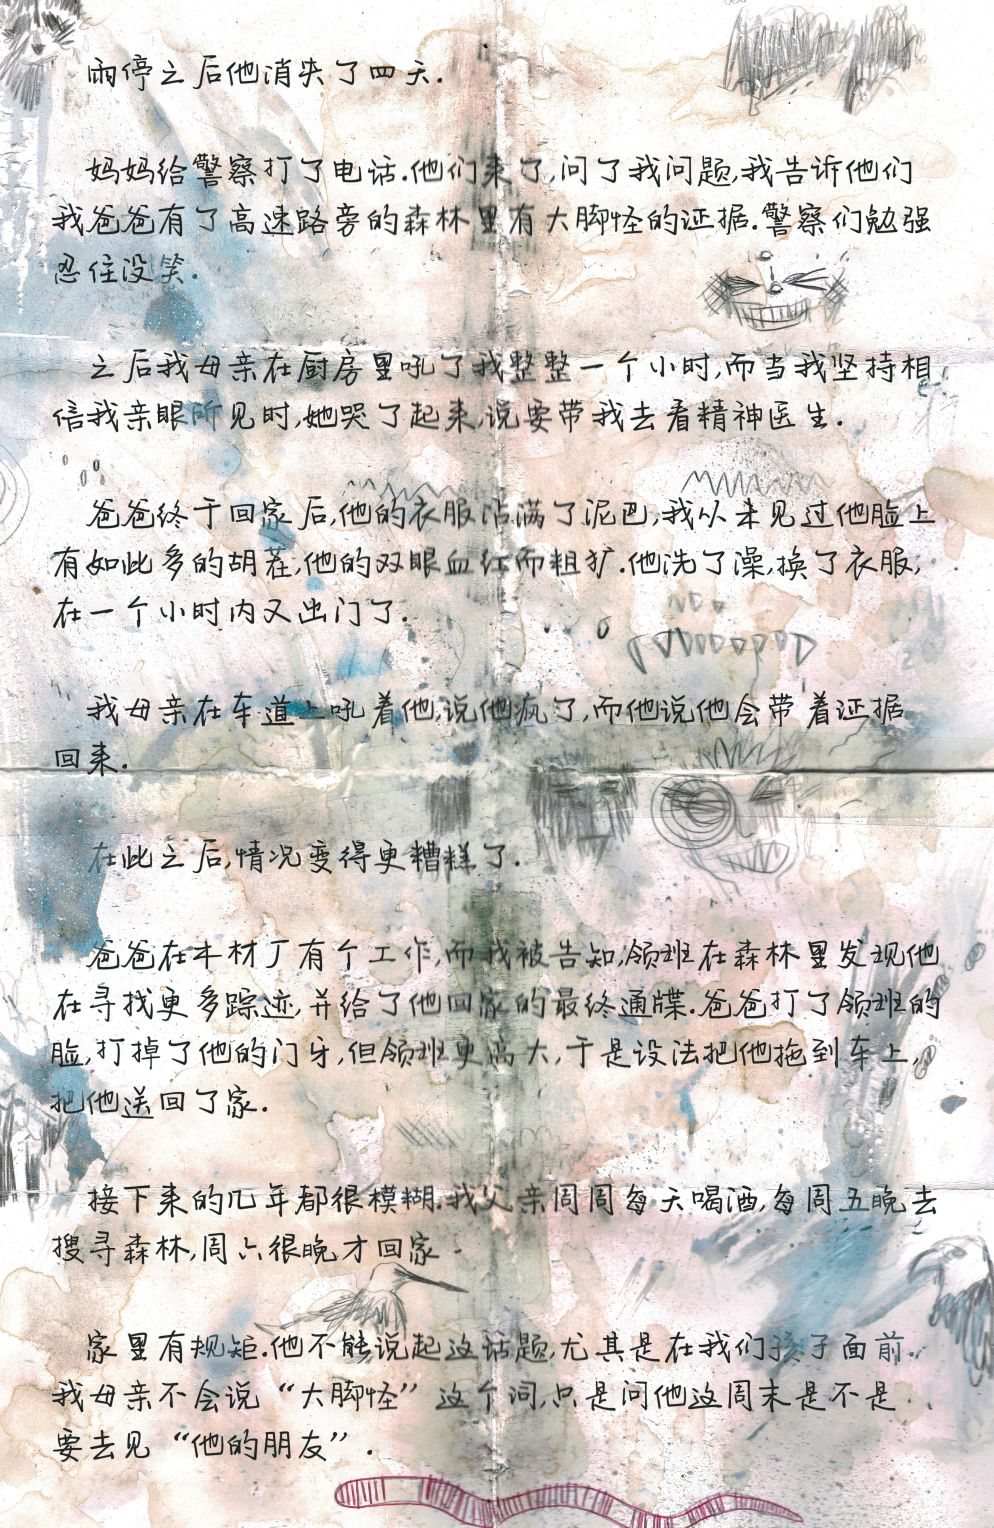 雨停之后他消失了四天.
妈妈给警察打了电话.他们来了,问了我问题,我告诉他们
我爸爸有了高速路旁的森林里有大脚怪的证据.警察们勉强
忍住没笑.
之后我母亲在厨房里吼了我整整一个小时,而当我坚持相
信我亲眼所见时,她哭了起来,说要带我去看精神医生.
爸爸终于回家后,他的衣服沾满了泥巴,我从未见过他脸上
有如此多的胡茬,他的双眼血红而粗犷.他洗了澡,换了衣服,
在一个小时内又出门了.
我母亲在车道上吼着他,说他疯了,而他说他会带着证据
回来.
在此之后,情况变得更糟糕了.
爸爸在木材厂有个工作,而我被告知,领班在森林里发现他
在寻找更多踪迹,并给了他回家的最终通牒.爸爸打了领班的
脸,打掉了他的门牙,但领班更高大,于是设法把他拖到车上,
把他送回了家.
接下来的几年都很模糊.我父亲周周每天喝酒,每周五晚去
搜寻森林,周六很晚才回家.
家里有规矩.他不能说起这话题,尤其是在我们孩子面前.
我母亲不会说“大脚怪”这个词,只是问他这周末是不是
要去见“他的朋友”.